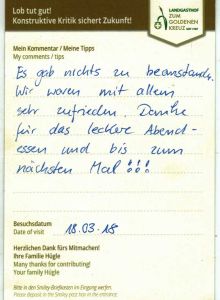 Lob tut gut!
Konstruktive Kritik sichert Zukunft!
LANDGASTHOF
ZUM
GOLDENEN
KREUZ
Mein Kommentar / Meine Tipps
My comments / tips
Es gab nichts zu beanstanden.
Wir waren mit allem
sehr zufrieden. Danke
für das leckere Abend-
essen und bis zum
nächsten Mal !!!
Besuchsdatum
Date of visit
18.03.18
Herzlichen Dank fürs Mitmachen!
Ihre Familie Hügle
Many thanks for contributing!
Your family Hügle
Bitte in den Smiley-Briefkasten im Eingang werfen.
Please deposit in the Smiley post box in the entrance.